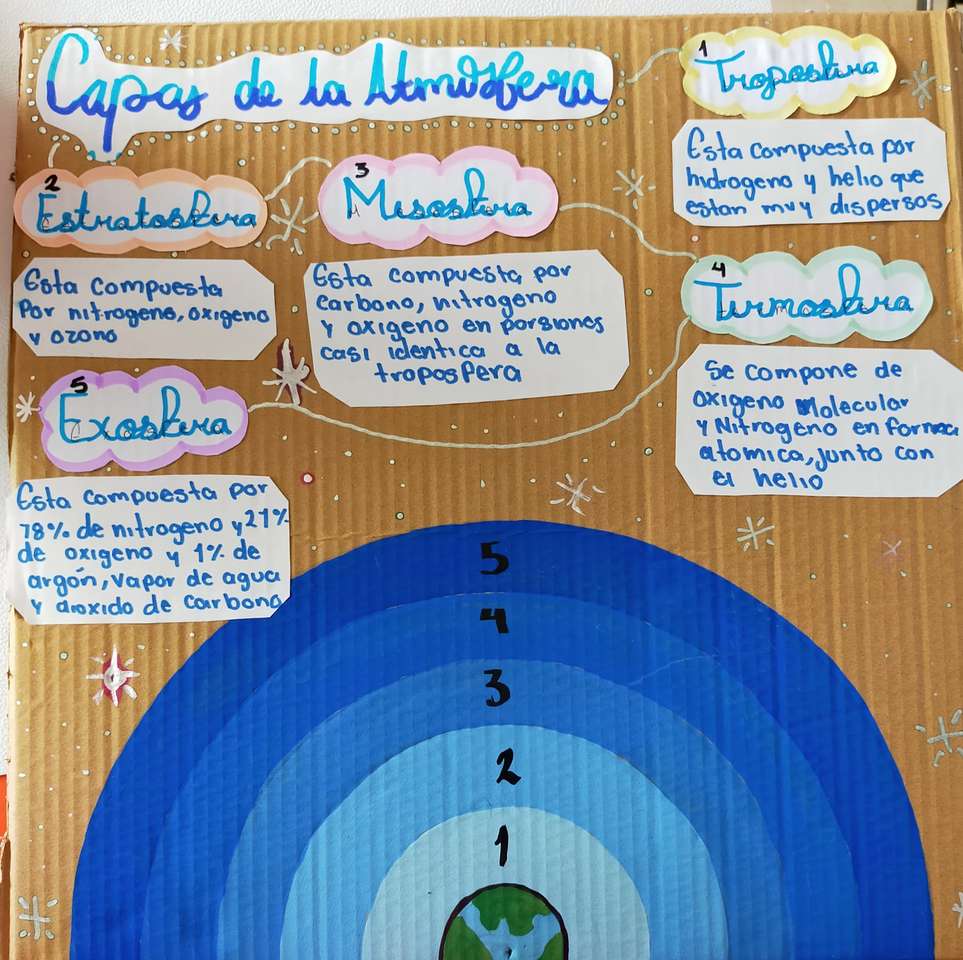 Capas de la Atmósfera
1
Troposfera
Esta compuesta por
hidrogeno y helio que
estan muy dispersos
2
Estratosfera
Esta compuesta
Por nitrogeno, oxigeno
y ozono
3
Mesosfera
Esta compuesta por
Carbono, nitrogeno
y oxigeno en porsiones
casi identica a la
troposfera
4
Termosfera
Se compone de
oxigeno Molecular
y Nitrogeno en forma
atomica, junto con
el helio
5
Exosfera
Esta compuesta por
78% de nitrogeno y 21%
de oxigeno y 1% de
argón, vapor de agua
y dioxido de carbono
5
4
3
2
1